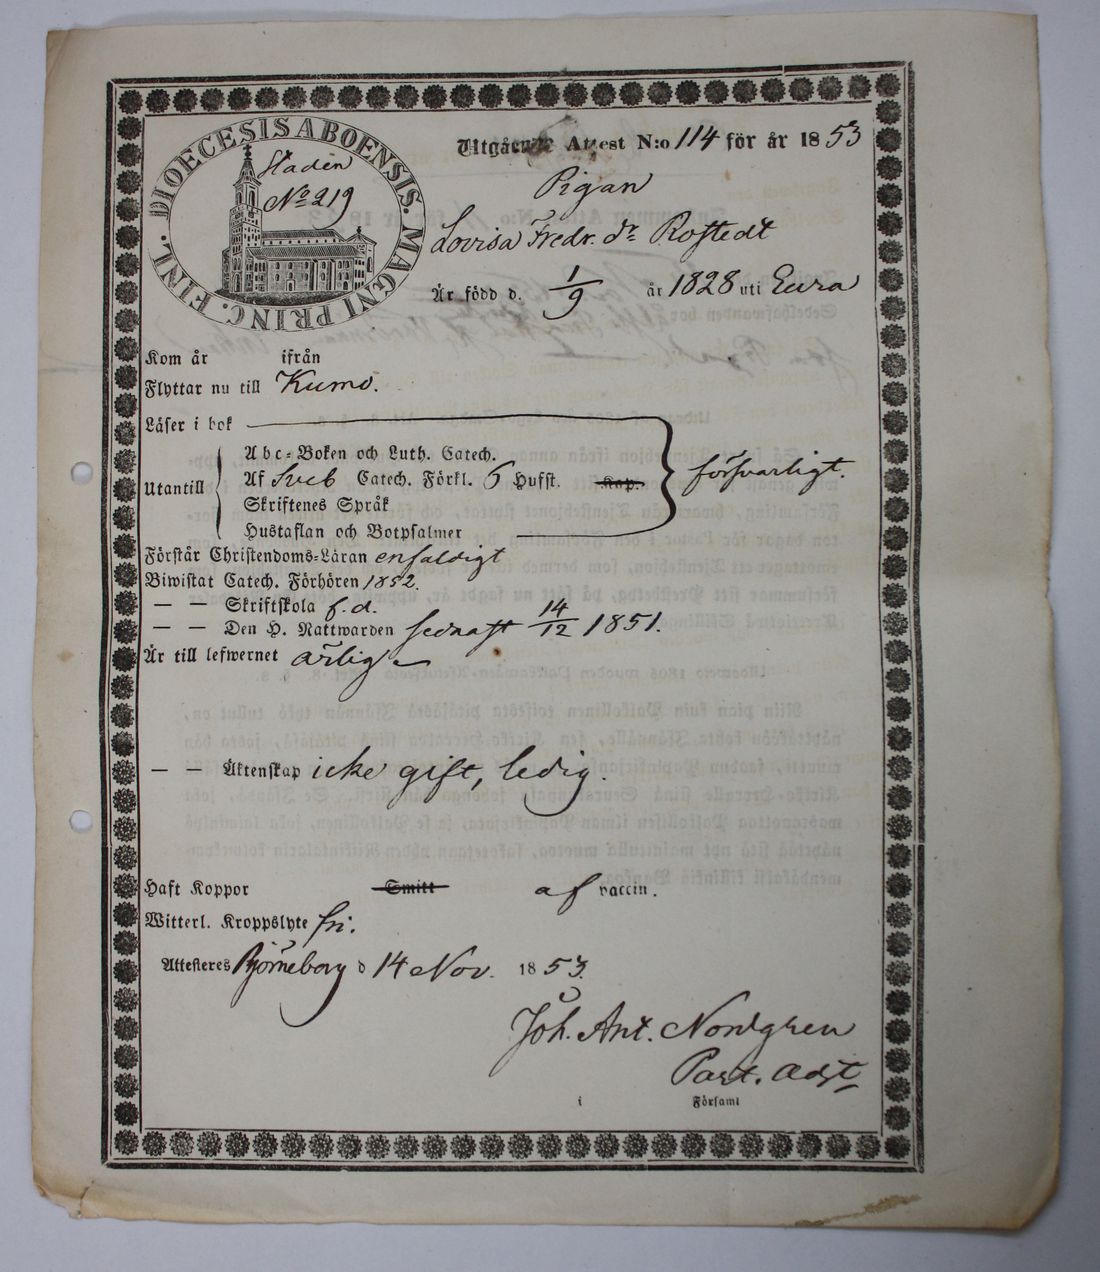 DIOECESIS ABOENSIS. MAGNI PRINC. FINL.
Staden
No 219
Utgående Attest N:o 114 för år 1853
Pigan
Lovisa Fredr. dr Rostedt
Är född d. 1/9 år 1828 uti Eura
Kom år ifrån
Flyttar nu till Kumo.
Läser i bok
Utantill
Abc-Boken och Luth. Catech.
Af Sveb Catech. Förkl. 6 Hufst. Kap. försvarligt.
Skriftenes Språk
Hustaflan och Botpsalmer
Förstår Christendoms-Läran enfaldigt
Biwistat Catech. Förhören 1852.
— — Skriftskola f.d.
— — Den H. Nattwarden sednast 14/12 1851.
Är till lefwernet ärlig
— — Äktenskap icke gift, ledig.
Haft Koppor Smitt af vaccin.
Witterl. Kroppslyte fri.
Attesteres Björneborg d 14 Nov. 1853.
Joh. Ant. Nordgren
Past. Adjt
i Församl